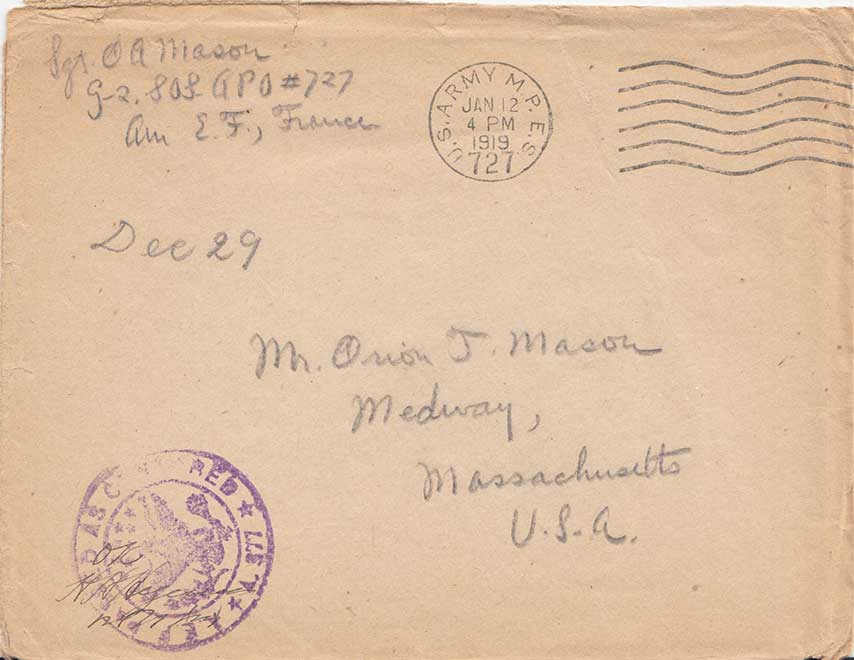 Sgt. O A Mason
G-2, SOS APO #727
Am E. F., France
U.S. ARMY M.P.E.S.
JAN 12
4 PM
1919
727
Dec 29
Mr. Orion T. Mason
Medway,
Massachusetts
U.S.A.
AS CENSORED
OK